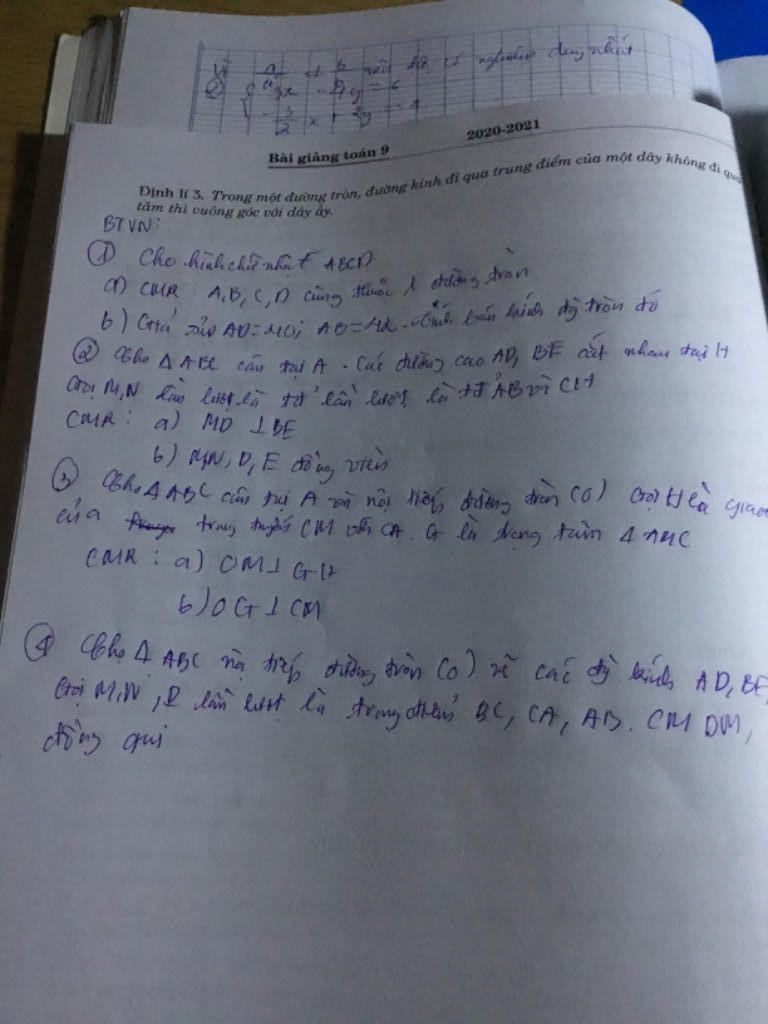 Vì a/a' ≠ b/ nên hệ có nghiệm duy nhất
② { 3x - y = 6
- 3/2 x + 2y = -
Bài giảng toán 9 2020-2021
Định lí 3. Trong một đường tròn, đường kính đi qua trung điểm của một dây không đi qua
tâm thì vuông góc với dây ấy.
BTVN:
① Cho hình chữ nhật ABCD
a) CMR: A,B,C,D cùng thuộc 1 đường tròn
b) Giả sử AD= ; AB= . Tính bán kính đg tròn đó
② Cho Δ ABC cân tại A. Các đường cao AD, BE cắt nhau tại H
Gọi M,N lần lượt là tđ lần lượt là tđ AB và CH
CMR: a) MD ⊥ BE
b) M,N, D, E đồng viên
③ Cho Δ ABC cân tại A và nội tiếp đường tròn (O) Gọi H là giao
của trung tuyến CM với OA. G là trọng tâm Δ AMC
CMR: a) OM ⊥ GH
b) OG ⊥ CM
④ Cho Δ ABC nội tiếp đường tròn (O) vẽ các đg kính AD, BE,
Gọi M,N, lần lượt là trung điểm BC, CA, AB. CM DM,
đồng qui